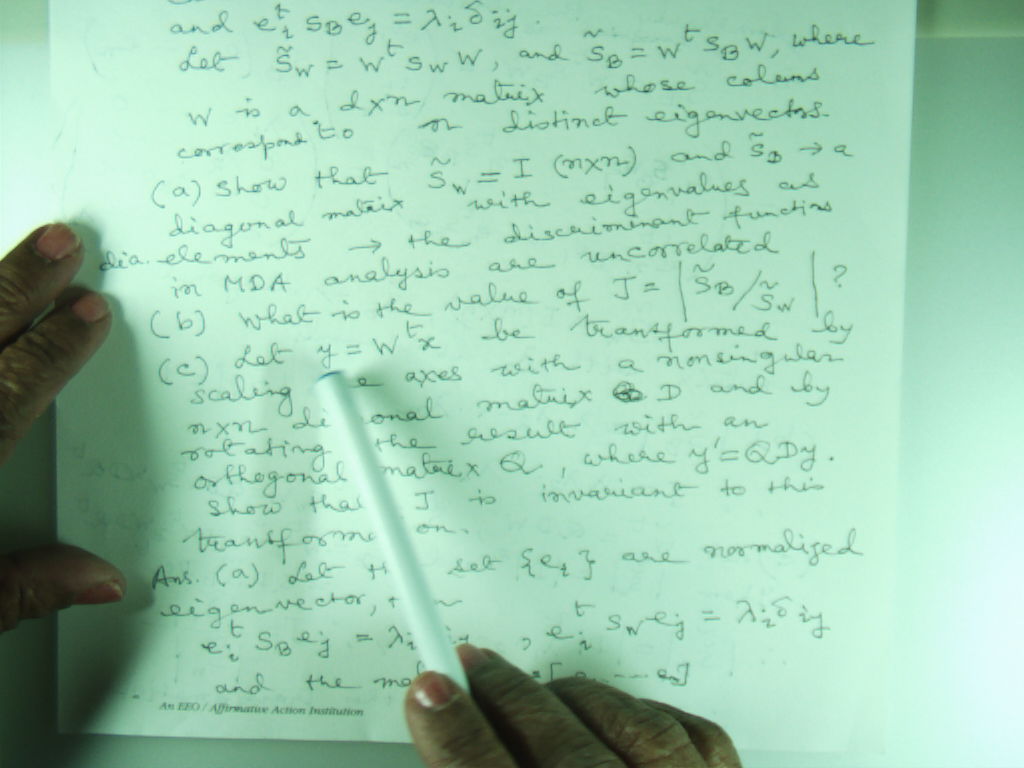 and e_i^t S_B e_j = λ_i δ_ij.
Let S̃_W = W^t S_W W, and S̃_B = W^t S_B W, where
W is a d×n matrix whose colums
correspond to n distinct eigenvectors.
(a) Show that S̃_W = I (n×n) and S̃_B → a
diagonal matrix with eigenvalues as
dia. elements → the discriminant functins
in MDA analysis are uncorrelated
(b) What is the value of J = |S̃_B / S̃_W| ?
(c) Let y = W^t x be transformed by
scaling axes with a nonsingular
n×n matrix D and by
rotating the result with an
orthogonal matrix Q, where y' = QDy.
Show J is invariant to this
Ans. (a) Let set {e_i} are normalized
eigenvector,
e_i^t S_B e_j = λ_i , e_i^t S_W e_j = λ_i δ_ij
and the =[e_1 ---- e_n]
An EEO / Affirmative Action Institution